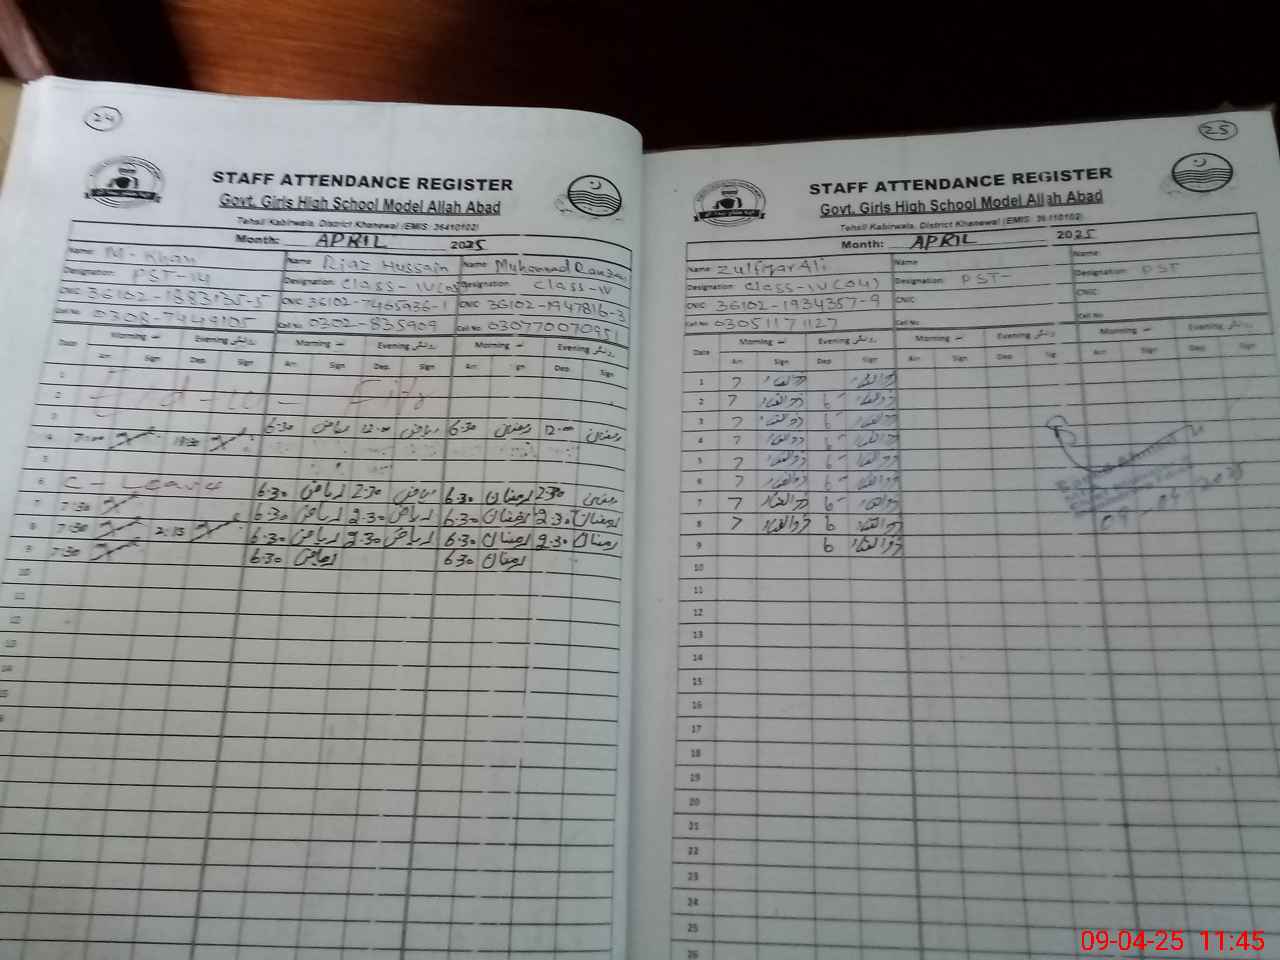 24
STAFF ATTENDANCE REGISTER
Govt. Girls High School Model Allah Abad
Tehsil Kabirwala, District Khanewal (EMIS: 36410102)
Month: APRIL 2025
Name: M. Khan Name: Riaz Hussain Name: Muhammad Ramzan
Designation: PST-14 Designation: Class-IV Designation: Class-IV
CNIC: 36102-1883135-5 CNIC: 36102-7465936-1 CNIC: 36102-1947816-3
Cell No: 0308-7449105 Cell No: 0302-835909 Cell No: 030770070951
Date Morning آمد Evening روانگی Morning آمد Evening روانگی Morning آمد Evening روانگی
Arr. Sign Dep. Sign Arr. Sign Dep. Sign Arr. Sign Dep. Sign
1
2 Eid-ul-Fitr
3 6.30 ریاض 12.00 ریاض 6.30 رمضان 12.00 رمضان
4 7:00 11:30
5
6 C-Leave 6.30 ریاض 2.30 ریاض 6.30 رمضان 2.30 رمضان
7 7:30 6.30 ریاض 2.30 ریاض 6.30 رمضان 2.30 رمضان
8 7:30 2:15 6.30 ریاض 2.30 ریاض 6.30 رمضان 2.30 رمضان
9 7:30 6.30 ریاض 6.30 رمضان
10
11
12
13
14
15
25
STAFF ATTENDANCE REGISTER
Govt. Girls High School Model Allah Abad
Tehsil Kabirwala, District Khanewal (EMIS: 36410102)
Month: APRIL 2025
Name: Zulfiqar Ali Name: Name:
Designation: Class-IV (04) Designation: PST- Designation: PST
CNIC: 36102-1934357-9 CNIC: CNIC:
Cell No: 03051171127 Cell No: Cell No:
Date Morning آمد Evening روانگی Morning آمد Evening روانگی Morning آمد Evening روانگی
Arr. Sign Dep. Sign Arr. Sign Dep. Sig Arr. Sign Dep. Sign
1 7 ذوالفقار ذوالفقار
2 7 ذوالفقار 6- ذوالفقار
3 7 ذوالفقار 6- ذوالفقار
4 7 ذوالفقار 6- ذوالفقار
5 7 ذوالفقار 6- ذوالفقار
6 7 ذوالفقار 6- ذوالفقار
7 7 ذوالفقار 6- ذوالفقار
8 7 ذوالفقار 6 ذوالفقار
9 6 ذوالفقار
10
11
12
13
14
15
16
17
18
19
20
21
22
23
24
25
26
09-04-25 11:45